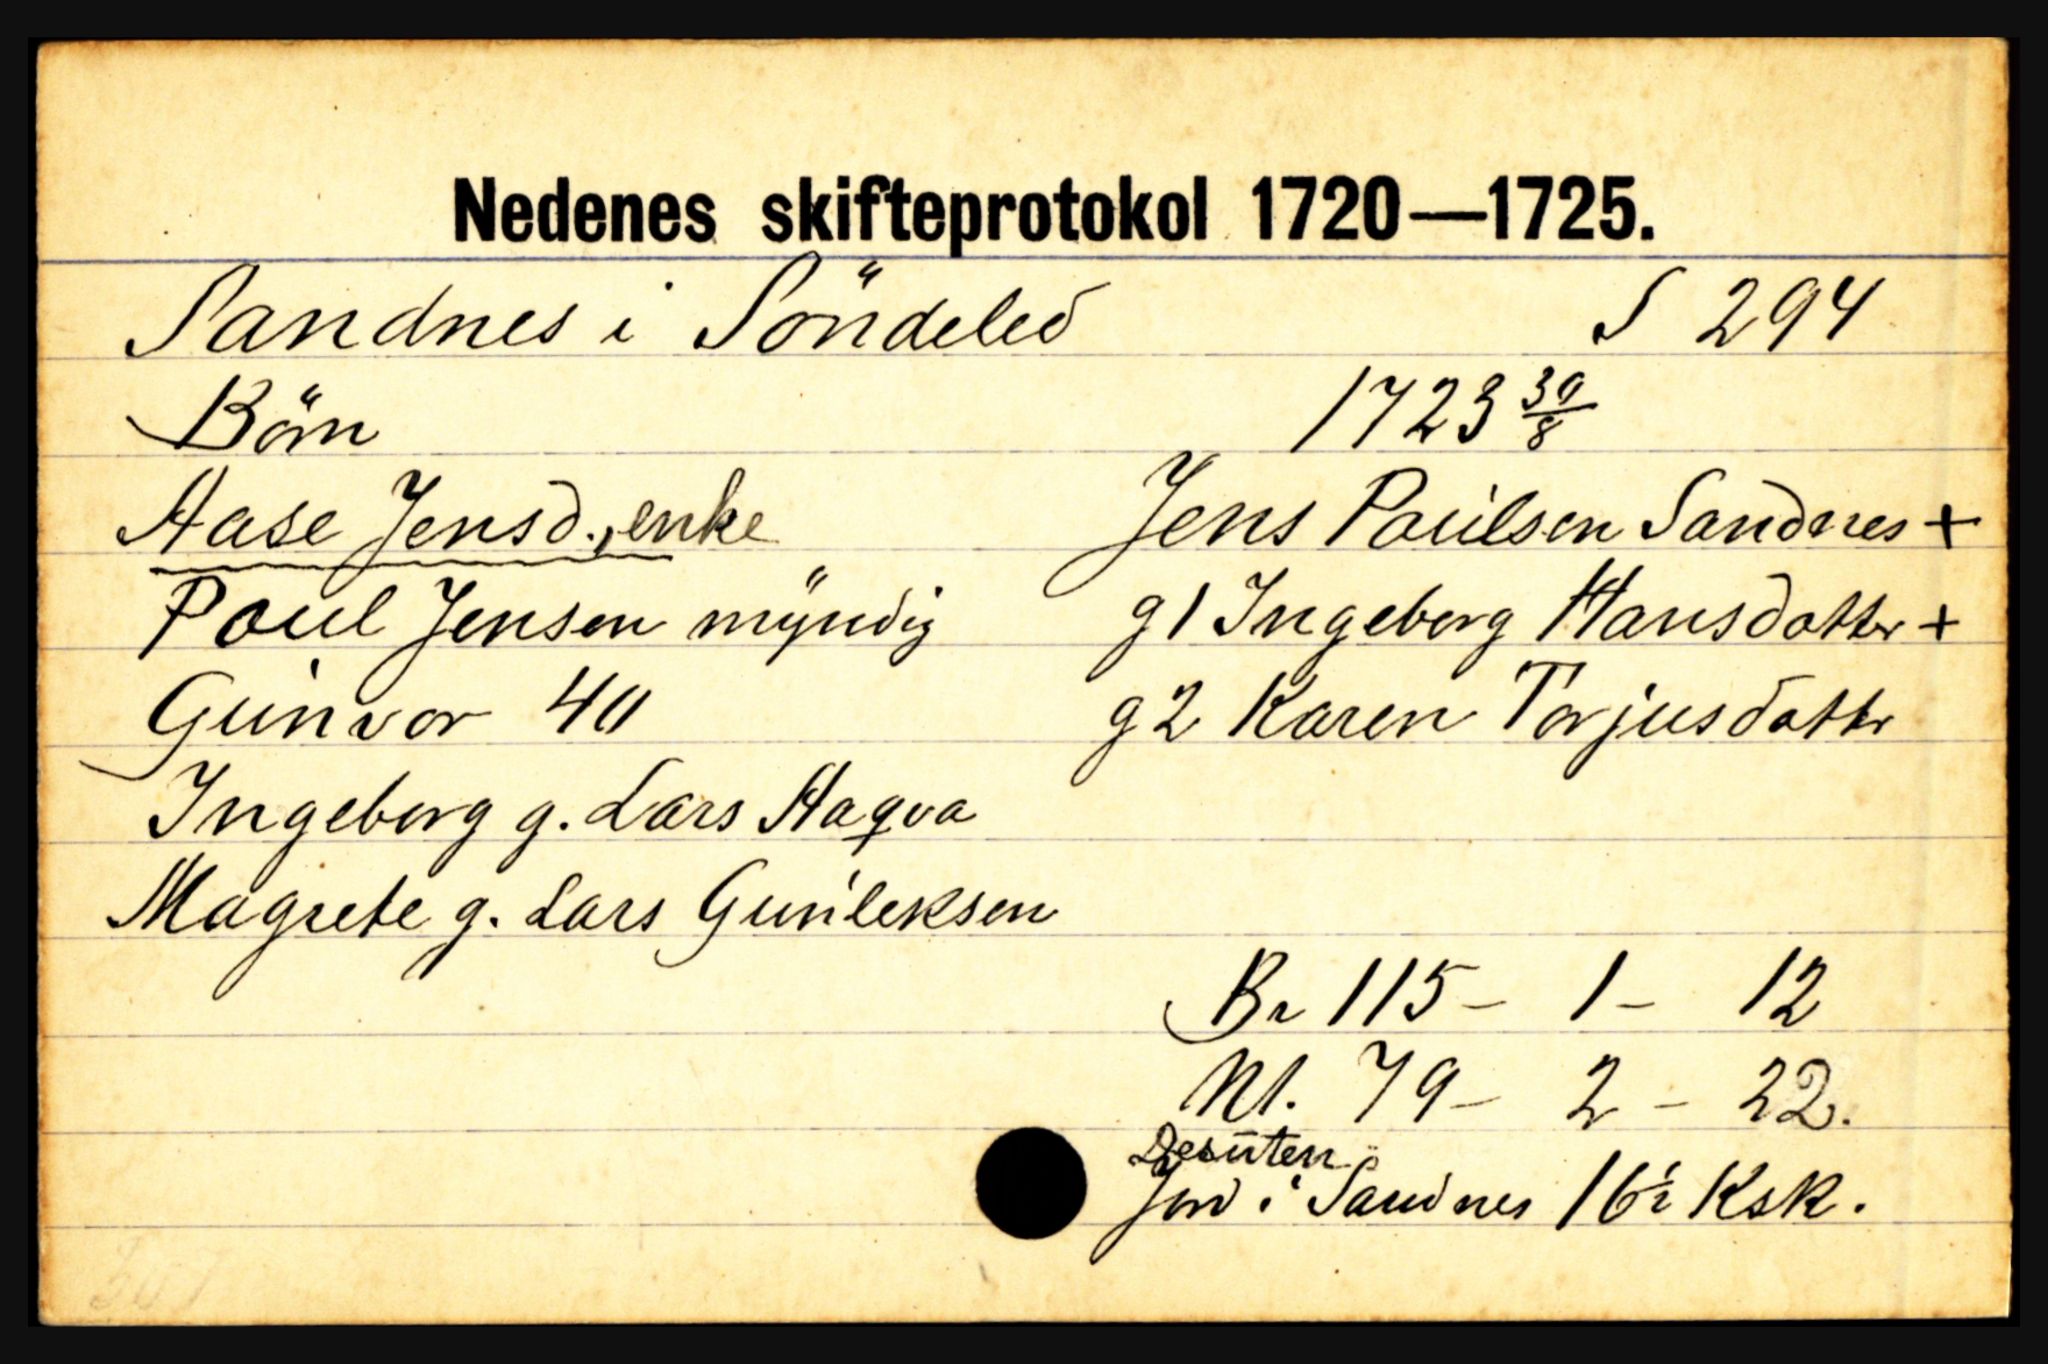 Nedenes skifteprotokol 1720—1725.
Sandnes i Söndeled S 294
Börn 1723 30/8
Aase Jensd., enke Jens Poulsen Sandnes +
Poul Jensen myndig g 1 Ingeborg Hansdotter +
Gunvor 40 g 2 Karen Torjusdotter
Ingeborg g. Lars Haqva
Magrete g. Lars Gunleksen
Br 115 – 1 – 12
Nt. 79 – 2 – 22.
Desuten
Jord i Sandnes 16½ Ksk.